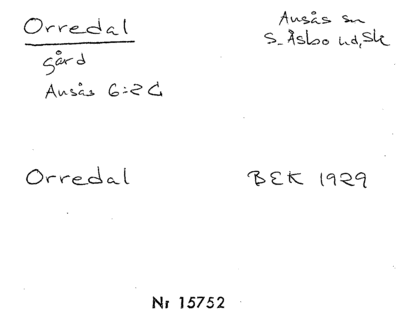 Orredal
Ausås sn
S. Åsbo hd, Sk
gård
Ausås 6:2 C
Orredal
BEK 1929
Nr 15752